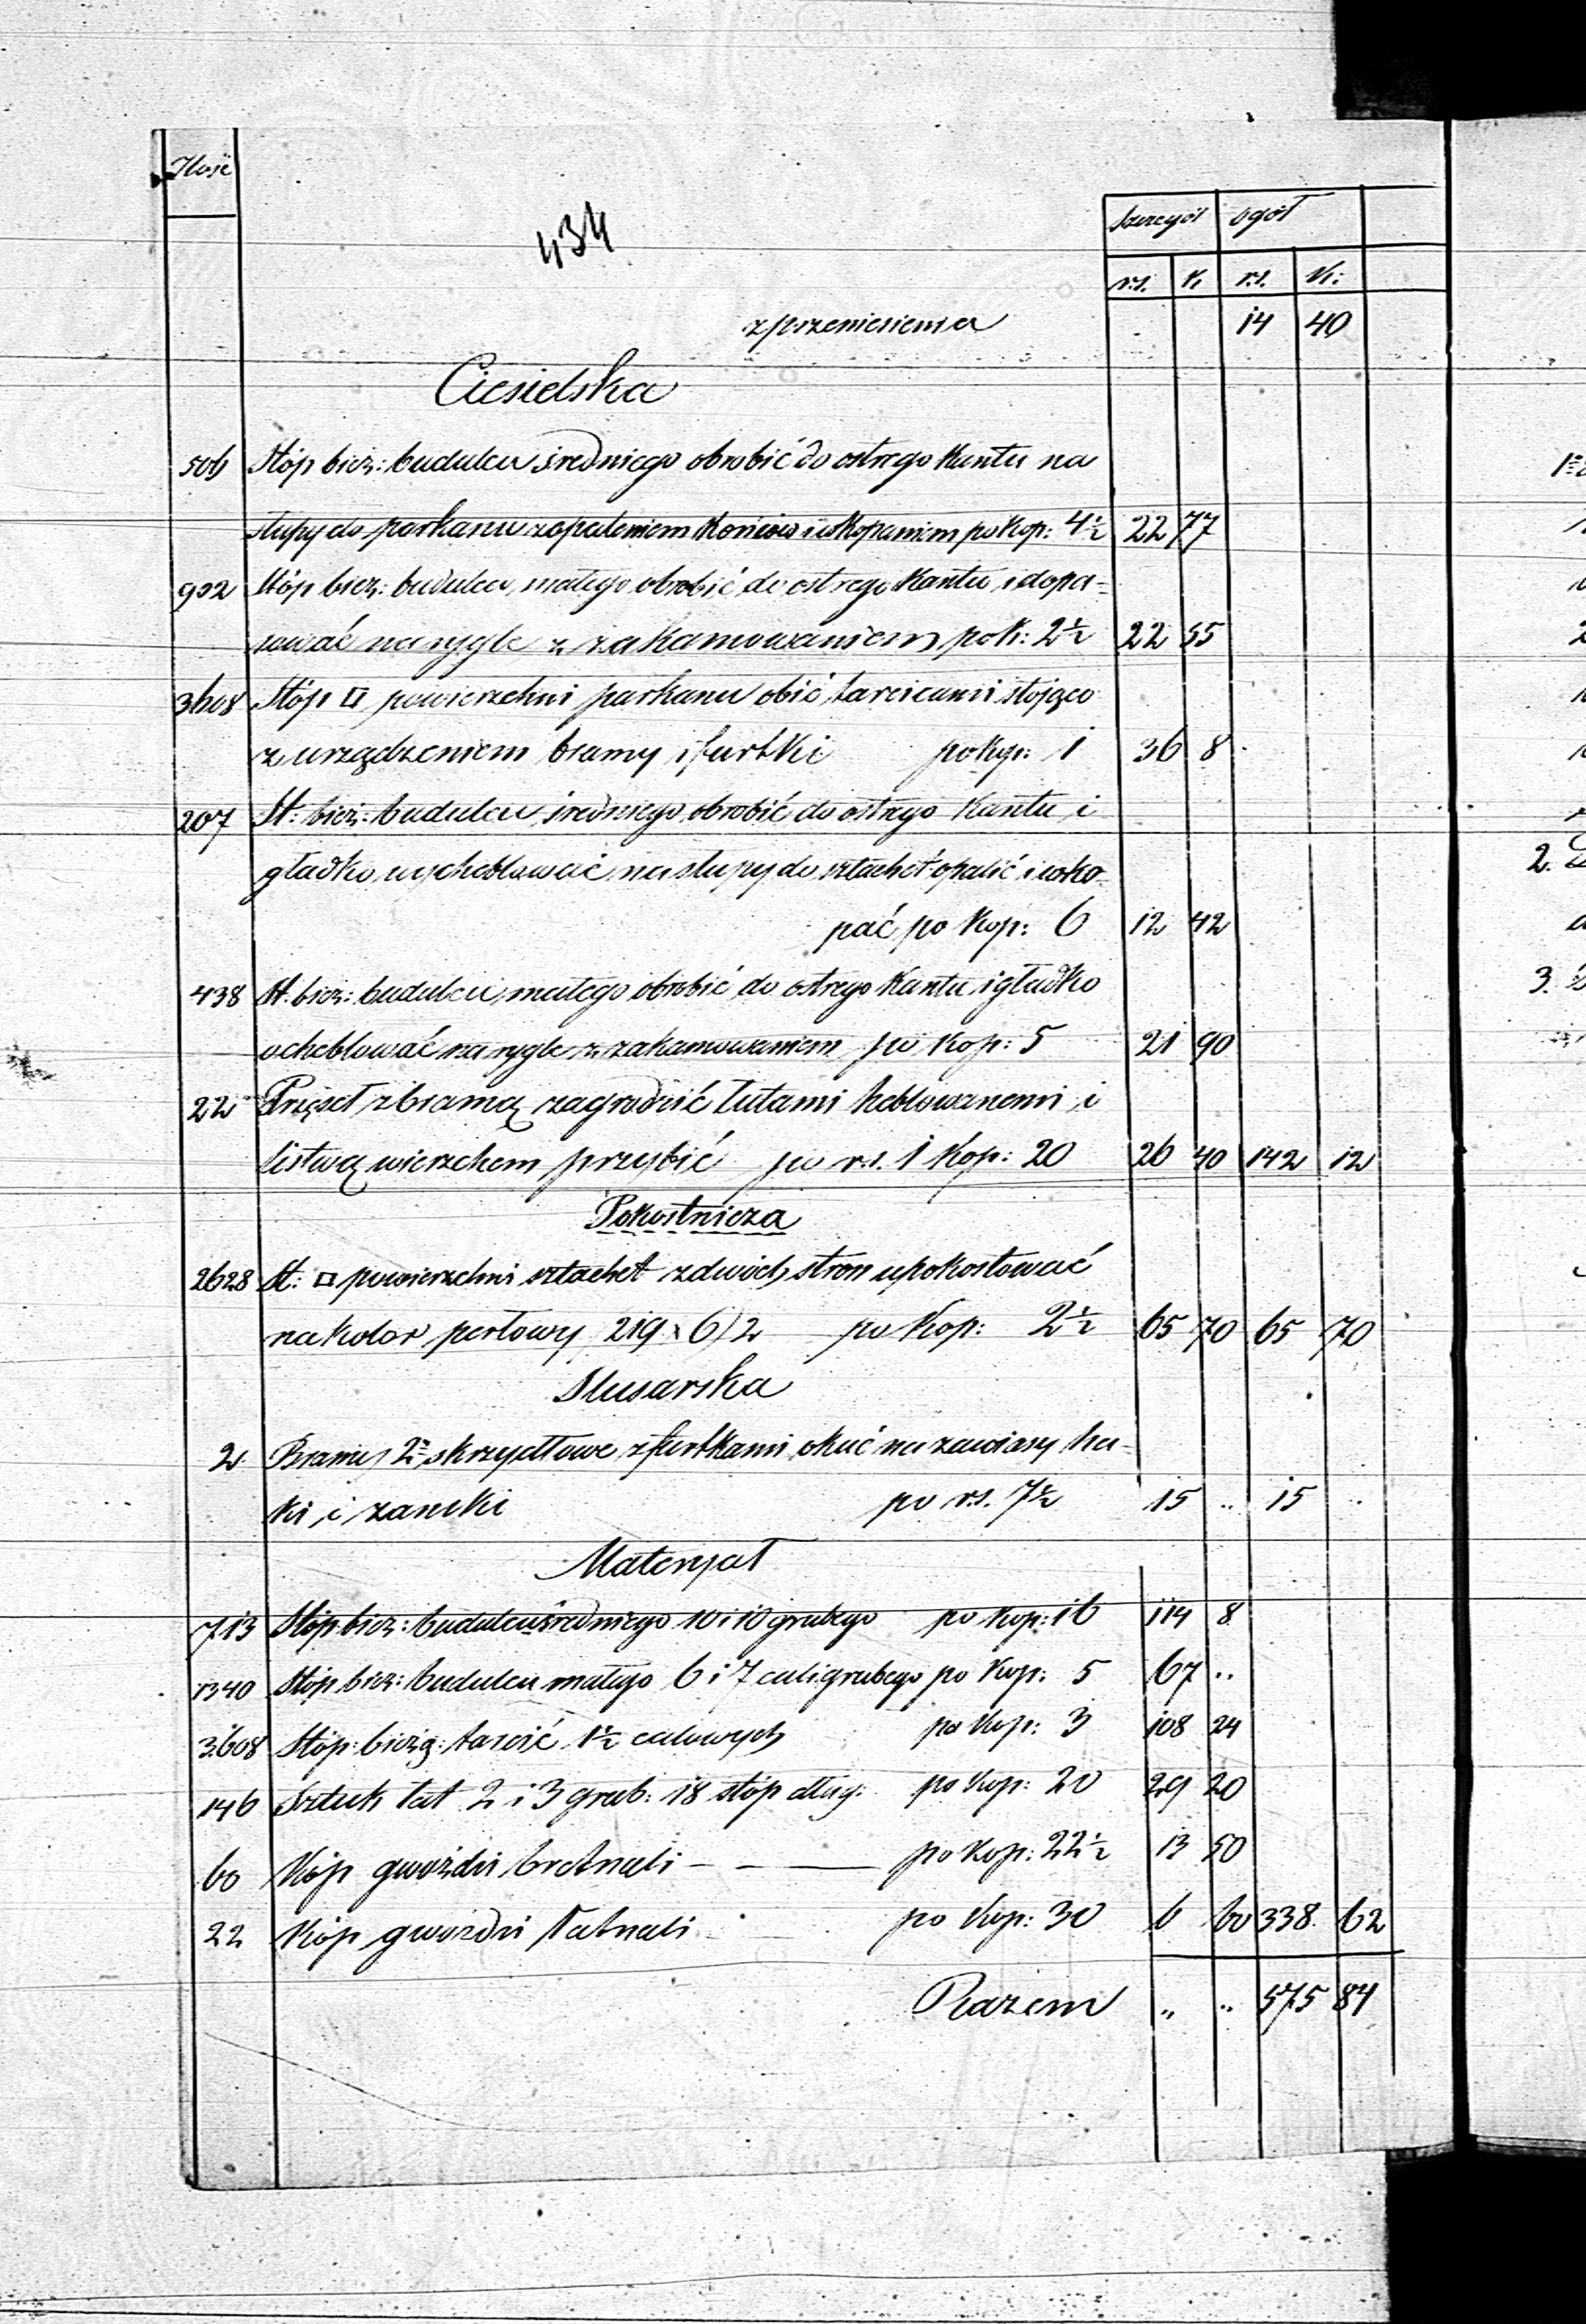 Ilość
434
Szczegół ogół
r.s. k. r.s. k:
z przeniesienia 14 40
Ciesielska
506 Stóp bież: budulcu średniego obrobić do ostrego kantu na
słupy do parkanu z opaleniem końców i wkopaniem po kop: 4½ 22 77
902 Stóp bież: budulcu małego obrobić do ostrego kantu i dopa-
sować na rygle z zakamowaniem po k: 2½ 22 55
3608 Stóp □ powierzchni parkanu obić tarcicami stojąco
z urządzeniem bramy i furtki po kop: 1 36 8
207 St: bież: budulcu średniego obrobić do ostrego kantu i
gładko wycheblować na słupy do sztachet opalić i wko-
pać po kop: 6 12 42
438 St. bież: budulcu małego obrobić do ostrego kantu i gładko
ocheblować na rygle z zakamowaniem po kop: 5 21 90
22 Przęseł z bramą zagrodzić łatami heblowanemi i
listwą wierzchem przybić po r.s. 1 kop: 20 26 40 142 12
Pokostnicza
2628 St: □ powierzchni sztachet z dwóch stron upokostować
na kolor perłowy 219 x 6) 2 po kop: 2½ 65 70 65 70
Slusarska
2 Bramy 2 skrzydłowe z furtkami okuć na zawiasy ha-
ki i zamki po r.s. 7½ 15 .. 15 ..
Materyał
713 Stóp bież: budulcu średniego 10 i 10 grubego po kop: 16 114 8
1340 Stóp bież: budulcu małego 6 i 7 cali grubego po kop: 5 67 ..
3.608 Stóp: bieżą: tarcić 1½ calowych po kop: 3 108 24
146 Sztuk łat 2 i 3 grub: 18 stóp dług: po kop: 20 29 20
60 Kóp gwoździ bretnali - - — po kop: 22½ 13 50
22 Kóp gwoździ łatnali po kop: 30 6 60 338. 62
Razem .. .. 575 84
2.
3.